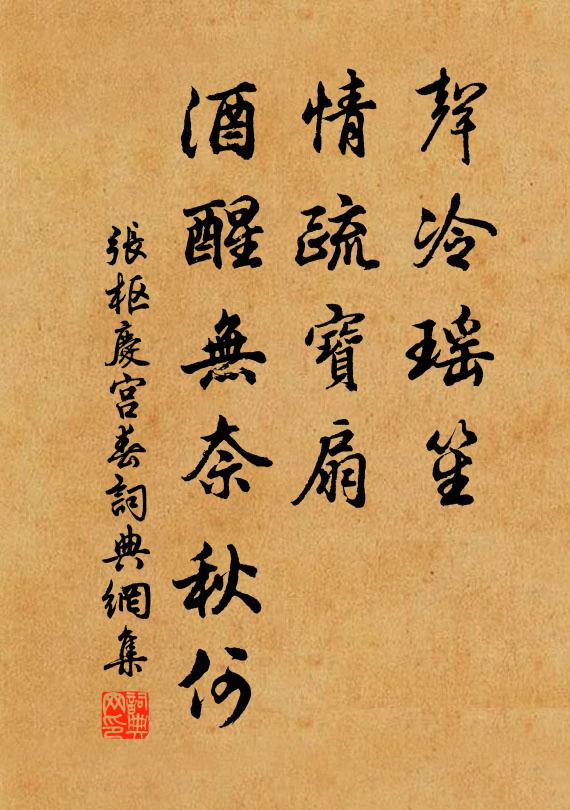 聲冷瑤笙
情疏寶扇
酒醒無奈秋何
張枢慶宮春詞典網集
詞典网印